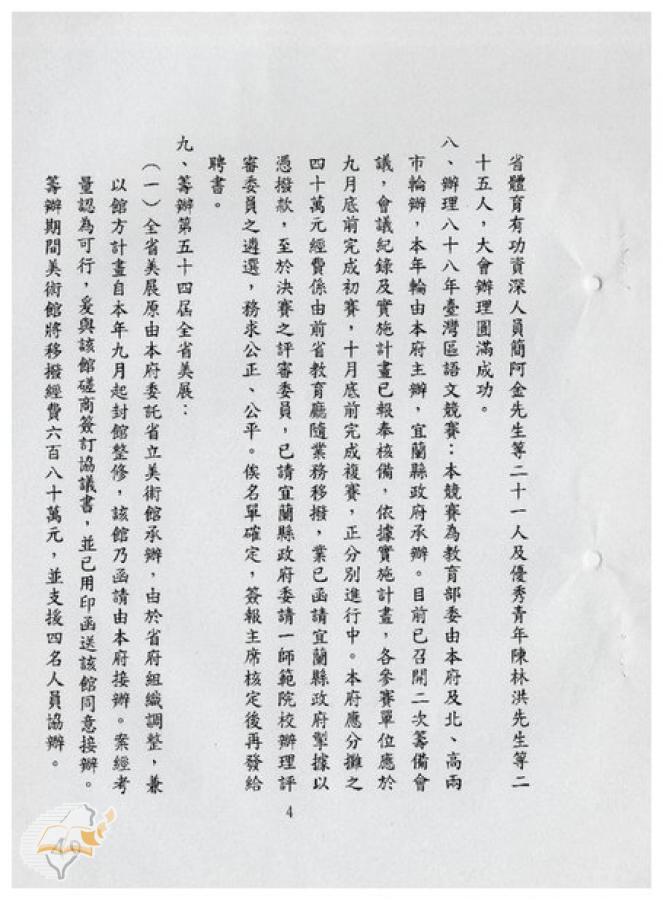 省體育有功資深人員簡阿金先生等二十一人及優秀青年陳林洪先生等二
十五人，大會辦理圓滿成功。
八、辦理八十八年臺灣區語文競賽：本競賽為教育部委由本府及北、高兩
市輪辦，本年輪由本府主辦，宜蘭縣政府承辦。目前已召開二次籌備會
議，會議紀錄及實施計畫已報奉核備，依據實施計畫，各參賽單位應於
九月底前完成初賽，十月底前完成複賽，正分別進行中。本府應分攤之
四十萬元經費係由前省教育廳隨業務移撥，業已函請宜蘭縣政府掣據以
憑撥款，至於決賽之評審委員，已請宜蘭縣政府委請一師範院校辦理評
審委員之遴選，務求公正、公平。俟名單確定，簽報主席核定後再發給
聘書。
九、籌辦第五十四屆全省美展：
（一）全省美展原由本府委託省立美術館承辦，由於省府組織調整，兼
以館方計畫自本年九月起封館整修，該館乃函請由本府接辦。案經考
量認為可行，爰與該館磋商簽訂協議書，並已用印函送該館同意接辦。
籌辦期間美術館將移撥經費六百八十萬元，並支援四名人員協辦。
4